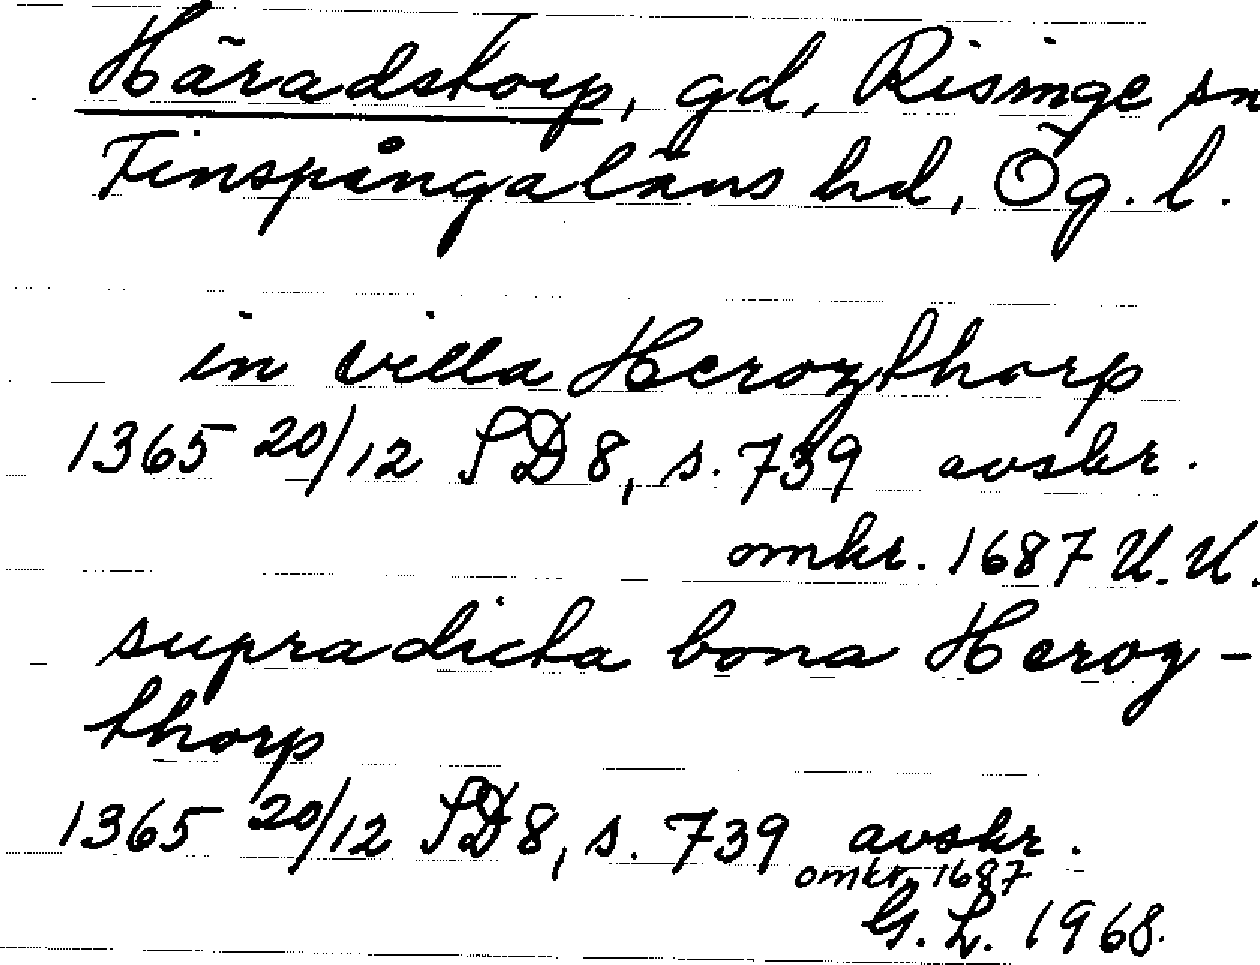 Häradstorp, gd, Risinge sn
Finspångaläns hd, Ög. l.
in villa Herozthorp
1365 20/12 SD 8, s. 739 avskr.
omkr. 1687 U. U.
supradicta bona Heroz-
thorp
1365 20/12 SD 8, s. 739 avskr.
omkr. 1687
G. L. 1968.